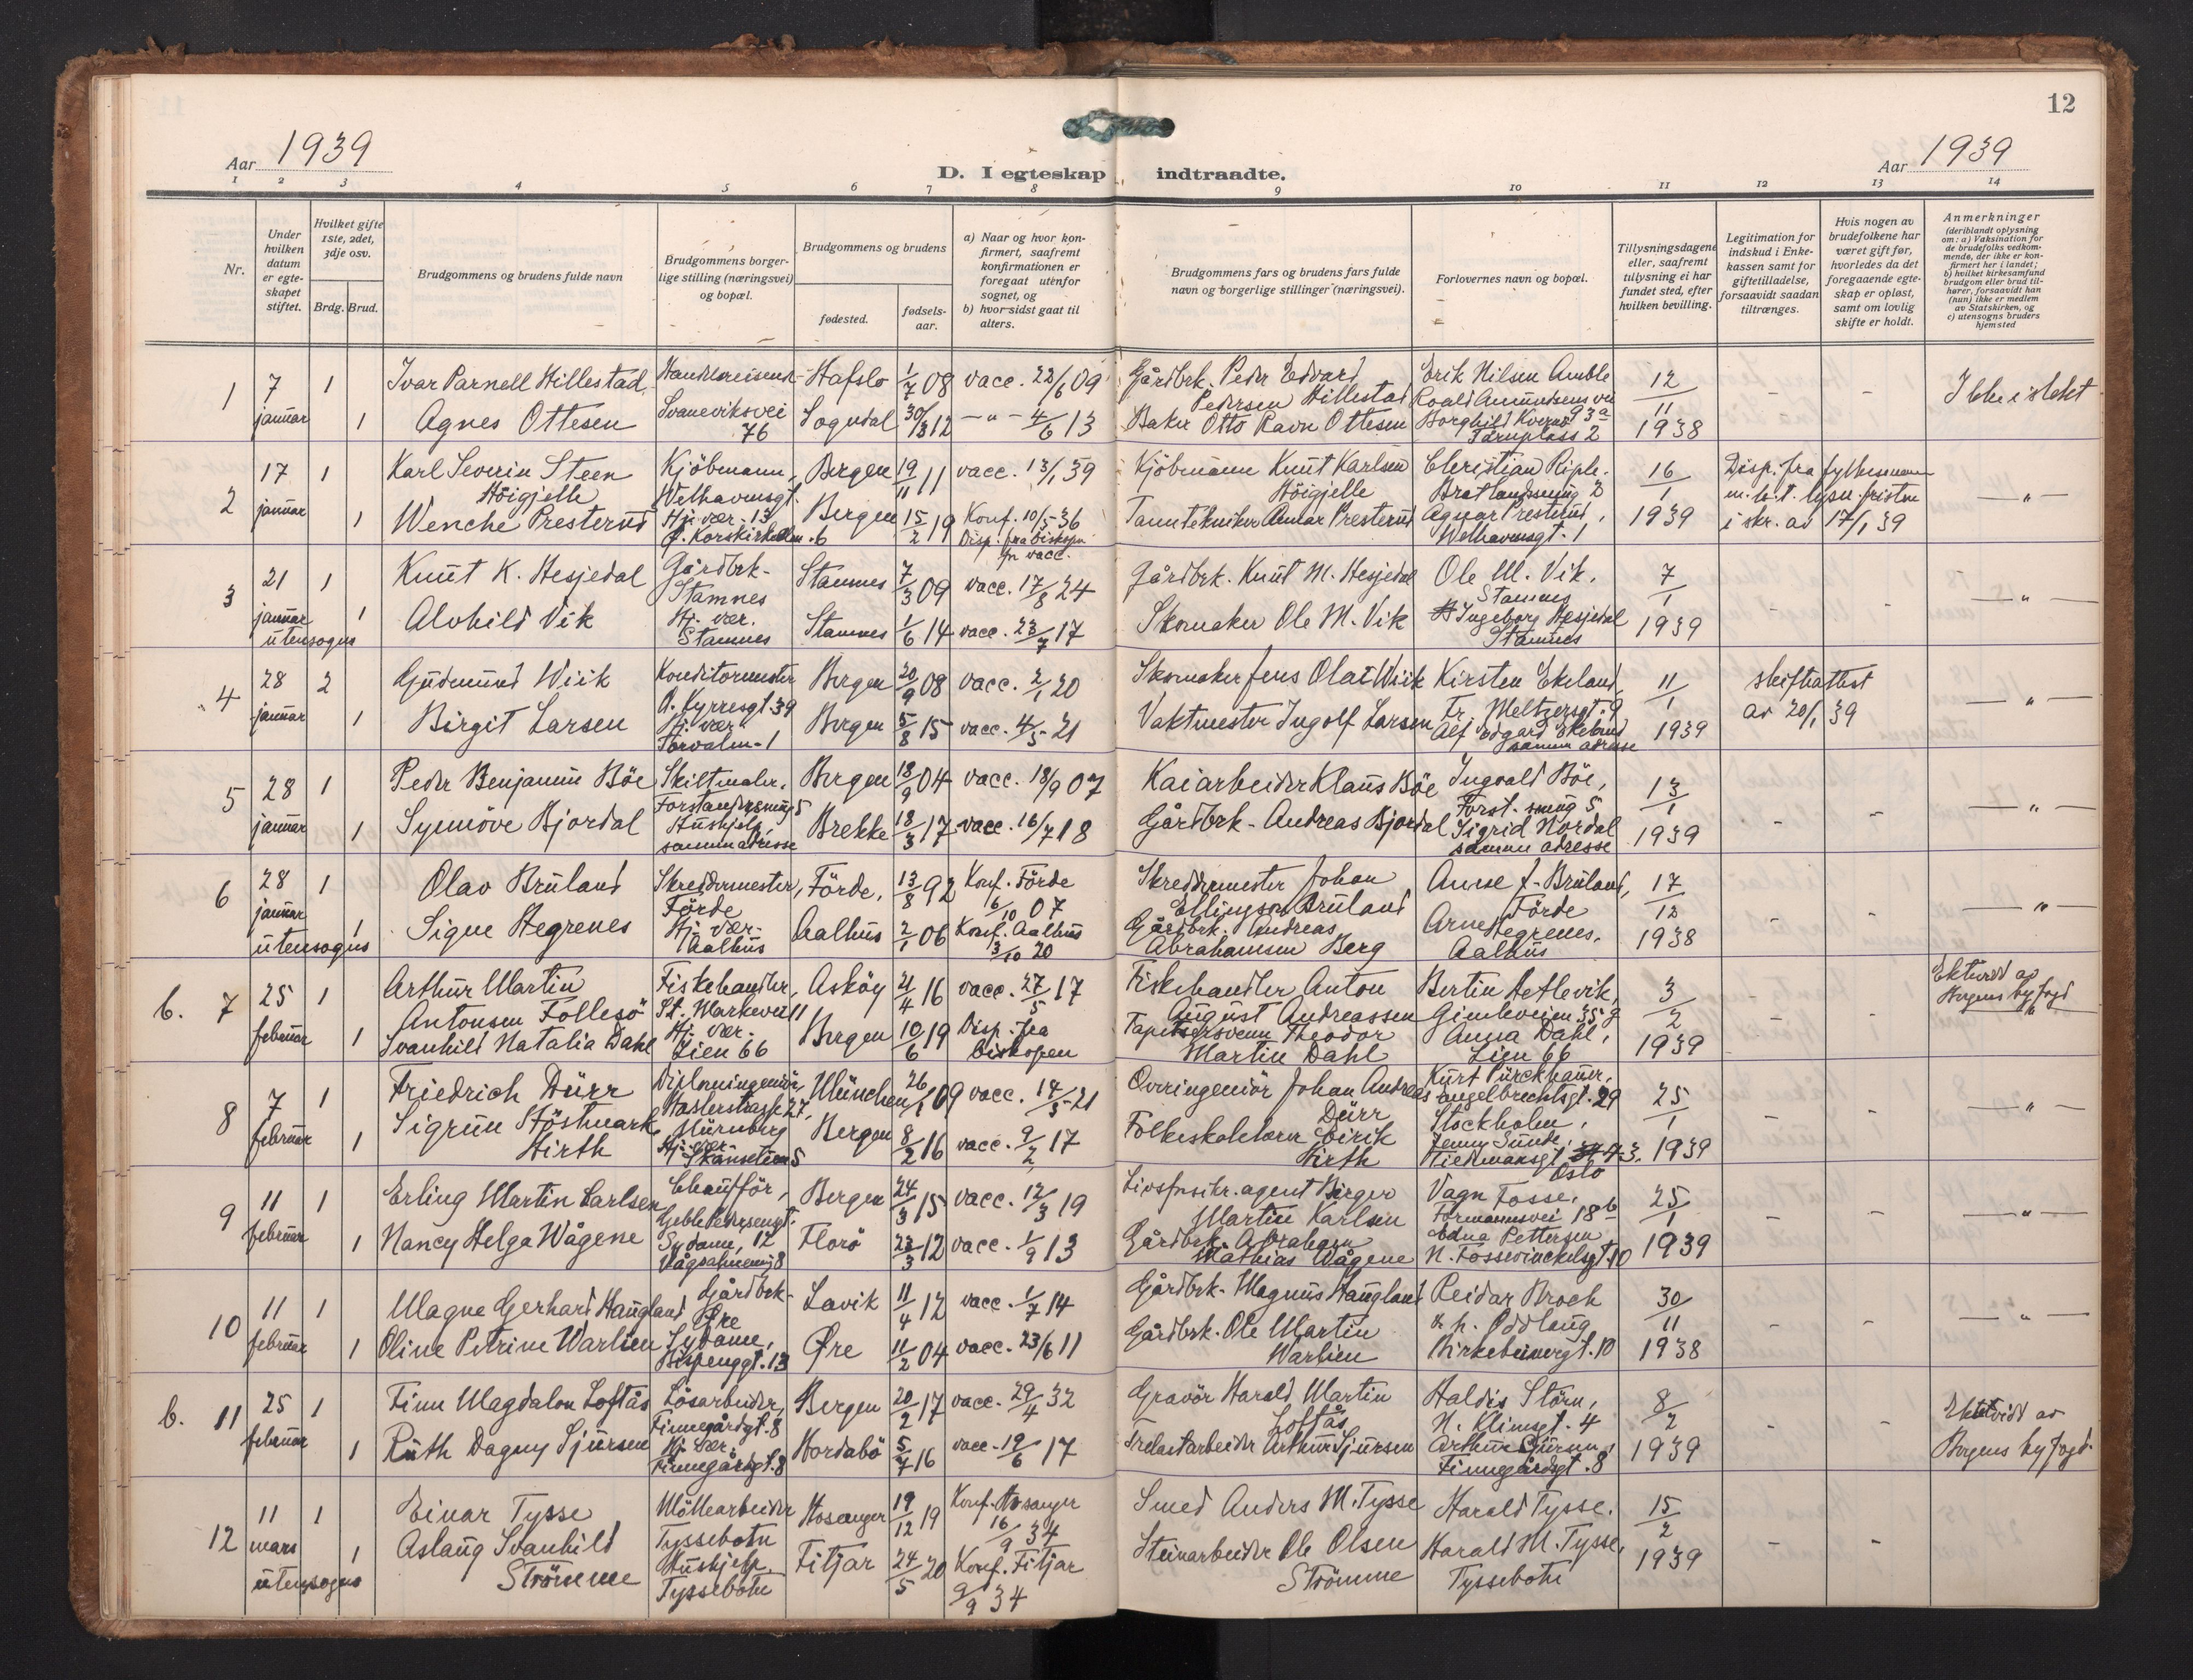 12
Aar 1939
Aar 1939
D. I egteskap indtraadte.
1 2 3 4 5 6 7 8 9 10 11 12 13 14
Nr.
Under hvilken datum er egteskapet stiftet.
Hvilket gifte 1ste, 2det, 3dje osv.
Brdg. Brud.
Brudgommens og brudens fulde navn
Brudgommens borgerlige stilling (næringsvei) og bopæl.
Brudgommens og brudens
fødested.
fødselsaar.
a) Naar og hvor konfirmert, saafremt konfirmationen er foregaat utenfor sognet, og
b) hvor sidst gaat til alters.
Brudgommens fars og brudens fars fulde navn og borgerlige stillinger (næringsvei).
Forlovernes navn og bopæl.
Tillysningsdagene eller, saafremt tillysning ei har fundet sted, efter hvilken bevilling.
Legitimation for indskud i Enkekassen samt for giftetilladelse, forsaavidt saadan tiltrænges.
Hvis nogen av brudefolkene har været gift før, hvorledes da det foregaaende egteskap er opløst, samt om lovlig skifte er holdt.
Anmerkninger
(deriblandt oplysning om: a) Vaksination for de brudefolks vedkommende, der ikke er konfirmert her i landet;
b) hvilket kirkesamfund brudgom eller brud tilhører, forsaavidt han (hun) ikke er medlem av Statskirken, og
c) utensogns bruders hjemsted
1 7 januar 1 Ivar Parnell Hillestad Handelsreisende Hafslo 1/7 08 vacc. 22/6 09 Gårdbrk. Peder Edvard Pedersen Hillestad Erik Nilsen Amble Roald Amundsens vei 93a 12/11 1938 - - Ikke i slekt
1 Agnes Ottesen Svaneviksvei 76 Sogndal 30/3 12 -"- 4/6 13 Baker Otto Ravn Ottesen Borghild Kvernø Tårnplass 2
2 17 januar 1 Karl Severin Steen Höigjelle Kjöbmann, Welhavensgt. 13 Bergen 19/11 11 vacc. 13/1 39 Kjöbmann Knut Karlsen Höigjelle Christian Riple. Bratlandssmug 2 16/1 1939 Disp. fra fylkesmannen m.h.t. lysn. fristen i skr. av 17/1 39 -"-
1 Wenche Presterud Hj. vær. Ø. Korskirkealm. 6 Bergen 15/2 19 Konf. 10/5-36 Disp. fra biskopen for vacc. Tanntekniker Amlar Presterud Agnar Presterud, Welhavensgt. 1
3 21 januar utensogns 1 Knut K. Hesjedal Gårdbrk. Stamnes Stamnes 7/3 09 vacc. 17/8 24 Gårdbrk. Knut M. Hesjedal Ole M. Vik. Stamnes 7/1 1939 - - -"-
1 Alvhild Vik Hj. vær. Stamnes Stamnes 1/6 14 vacc. 23/7 17 Skomaker Ole M. Vik Ingeborg Hesjedal Stamnes
4 28 januar 2 Gudmund Wiik Konditormester O. Kyrresgt 39 Bergen 20/9 08 vacc. 2/1 20 Skomaker Jens Olai Wiik Kirsten Ekeland, Fr. Meltzersgt. 9 11/1 1939 Skifteattest av 20/1 39 -"-
1 Birgit Larsen Hj. vær Torvalm. 1 Bergen 5/8 15 vacc. 4/5-21 Vaktmester Ingolf Larsen Alf Edgard Ekeland samme adresse
5 28 januar 1 Peder Benjamin Böe Skiltmaler. Forstandersmug 5 Bergen 18/9 04 vacc. 18/9 07 Kaiarbeider Klaus Böe Ingvald Böe, Forst. smug 5 13/1 1939 - - -"-
1 Synnöve Bjordal Hushjelp samme adresse Brekke 18/3 17 vacc. 16/7 18 Gårdbrk. Andreas Bjordal Sigrid Nordal samme adresse
6 28 januar utensogns 1 Olav Bruland Skreddermester, Förde Förde. 13/8 92 Konf. Förde 6/10 07 Skreddermester Johan Ellingsen Bruland Anne J. Bruland, Förde 17/12 1938 - - -"-
1 Signe Hegrenes Hj. vær. Aalhus Aalhus 2/1 06 Konf. Aalhus 3/10 20 Gårdbrk. Andreas Abrahamsen Berg Arne Hegrenes. Aalhus
b. 7 25 februar 1 Arthur Martin Antonsen Follesö Fiskehandler, St. Markevei 11 Asköy 21/4 16 vacc. 27/5 17 Fiskehandler Anton August Andreassen Bertin Detlevik, Gimleveien 35 g 3/2 1939 - - Ektevidd av Bergens byfogd
1 Svanhild Natalia Dahl Hj. vær. Lien 66 Bergen 10/6 19 Disp. fra biskopen Tapetsersvenn Theodor Martin Dahl Anna Dahl, Lien 66
8 7 februar 1 Friedrich Dürr Diplomingeniör, Haslerstrasse 27, Nürnberg München 26/1 09 vacc. 14/5-21 Overingeniör Johan Andreas Dürr Kurt Pürckhauer, Engelbrechtsgt. 29 Stockholm, 25/1 1939 - - -"-
1 Sigrun Stöstmark Hirth Hj. vær. Skansetien 5 Bergen 8/2 16 vacc. 9/2 17 Folkeskolelærer Eirik Hirth Jenny Sunde, Tiedmansgt. 3. Oslo
9 11 februar 1 Erling Martin Carlsen Chauffør, Geble Pedersensgt. 12 Bergen 24/3 15 vacc. 12/3 19 Livsforsikr. agent Birger Martin Karlsen Vagn Fosse, Formannsvei 18b 25/1 1939 - - -"-
1 Nancy Helga Wågene Sydame, Vågsalmenn. 8 Florö 23/3 12 vacc. 1/9 13 Gårdbrk. Abraham Mathias Wågene Edna Pettersen N. Fosswinckelsgt 10
10 11 februar 1 Magne Gerhard Haugland Gårdbrk. Øre Lavik 11/4 12 vacc. 1/7 14 Gårdbrk. Magnus Haugland Reidar Broch 30/11 1938 - - "-
1 Oline Petrine Warlien Sydame, Bispenggt. 13 Øre 11/2 04 vacc. 23/6 11 Gårdbrk. Ole Martin Warlien & fr. Oddlaug Birkebeinergt. 10
b. 11 25 februar 1 Finn Magdalon Loftås Lösarbeider, Finnegårdgt. 8 Bergen 20/2 17 vacc. 29/4 32 Gravör Harald Martin Loftås Haldis Störn, N. Klimsgt. 4 8/2 1939 - - Ektevidd av Bergens byfogd.
1 Ruth Dagny Sjursen Hj. vær. Finnegårdgt. 8 Hordabö 5/7 16 vacc. 19/6 17 Trelastarbeider Arthur Sjursen Arthur Sjursen, Finnegårdgt. 8
12 11 mars utensogns 1 Einar Tysse Möllearbeider Tyssebotn Hosanger 19/12 19 Konf. Hosanger 16/9 34 Smed Anders M. Tysse Harald Tysse. 15/2 1939 - -
1 Aslaug Svanhild Strömme Hushjelp Tyssebotn Fitjar 24/5 20 Konf. Fitjar 9/9 34 Steinarbeider Ole Olsen Strömme Harald M. Tysse, Tyssebotn